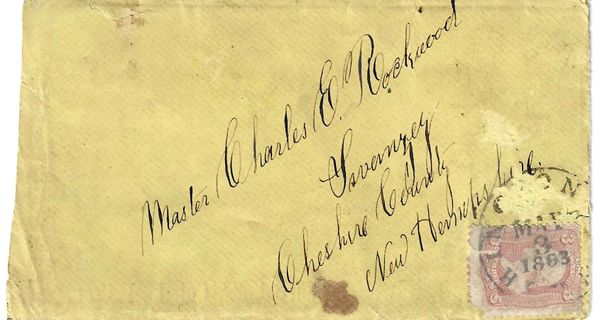 Master Charles E. Rockwood
Swanzey
Cheshire County
New Hempshire.
3
1863